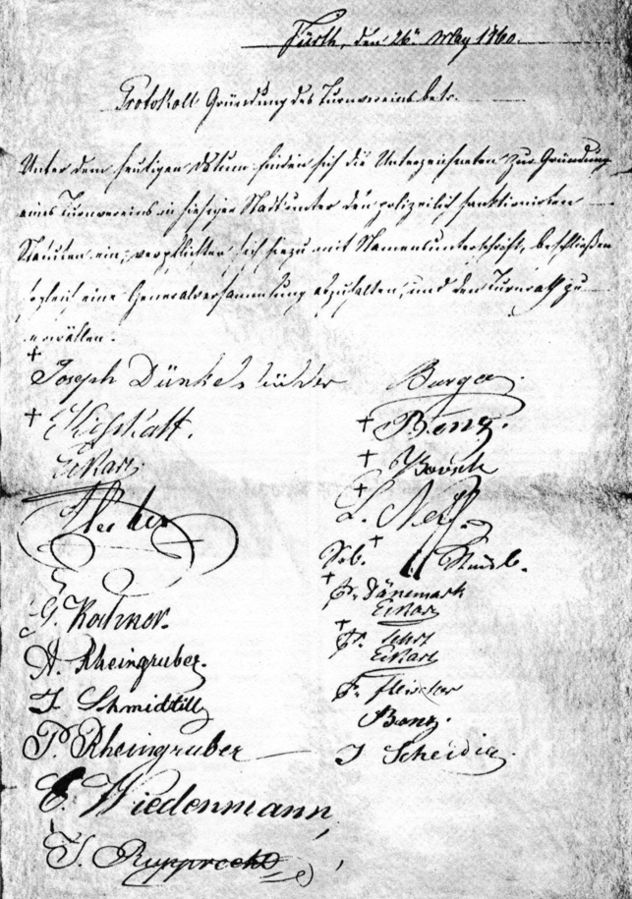 Fürth, den 26ten May 1860.
Protokoll Gründung des Turnvereins betr.
Unter dem heutigen Datum finden sich die Unterzeichneten zur Gründung
eines Turnvereins in hiesiger Stadt unter den polizeilich sanktionirten
Statuten ein, verpflichten sich hiezu mit Namensunterschrift, beschließen
sogleich eine Generalversammlung abzuhalten, und den Turnrath zu
erwählen.
Joseph Dünkelsbühler
Eckart
G. Kahner.
A. Rheingruber.
J. Schmidtill
P. Rheingruber
E. Wiedenmann,
J. Rupprecht
Burger
Benz.
L. Neff
Seb.
Fr. Dänemark
Eckart
Fr.
Eckart
Fr. Fleischer
Benz.
J Scheidig.